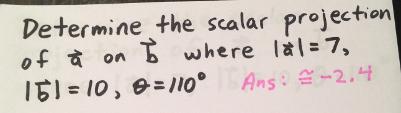 Determine the scalar projection
of a⃗ on b⃗ where |a⃗|=7,
|b⃗|=10, θ=110° Ans: ≅-2.4